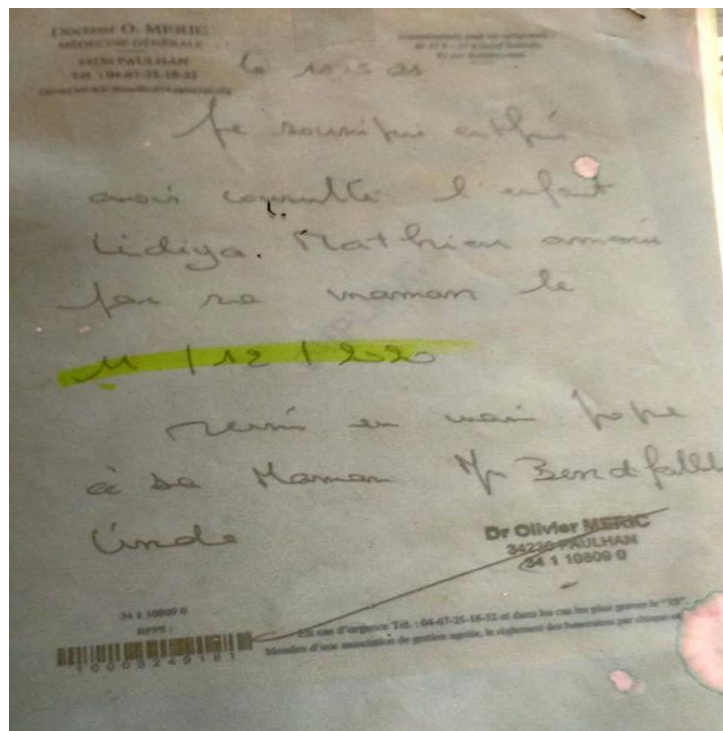 Docteur O. MERIC
MÉDECINE GÉNÉRALE
34230 PAULHAN
Tél. : 04-67-25-18-32
Le 10.5
Je soussigné certifie
avoir consulté l'enfant
Lidiya. Mathieu amenée
par sa maman le
11 / 12 / 2020
remis en main propre
à sa Maman Mme
Linda
Dr Olivier MERIC
34230 PAULHAN
34 1 10809 0
34 1 10809 0
RPPS :
En cas d'urgence Tél. : 04-67-25-18-32 et dans les cas les plus graves le "15"
Membre d'une association de gestion agréée, le règlement des honoraires par chèque